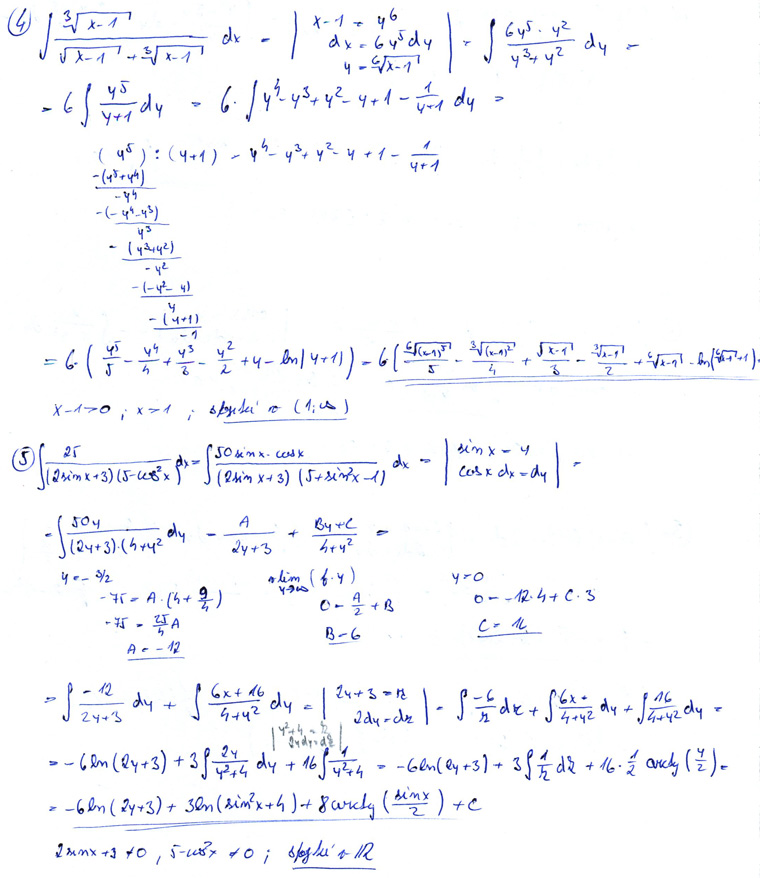 ④ ∫ ∛(x-1) / (√(x-1) + ∛(x-1)) dx = | x-1 = y⁶ ; dx = 6y⁵dy ; y = ⁶√(x-1) | = ∫ (6y⁵·y²)/(y³+y²) dy =
= 6 ∫ y⁵/(y+1) dy = 6·∫ y⁴-y³+y²-y+1-1/(y+1) dy =
(y⁵) : (y+1) = y⁴-y³+y²-y+1-1/(y+1)
-(y⁵+y⁴)
-y⁴
-(-y⁴-y³)
y³
-(y³+y²)
-y²
-(-y²-y)
y
-(y+1)
-1
= 6·( y⁵/5 - y⁴/4 + y³/3 - y²/2 + y - ln|y+1| ) = 6( ⁶√(x-1)⁵/5 - ∛(x-1)²/4 + √(x-1)/3 - ∛(x-1)/2 + ⁶√(x-1) - ln(⁶√(x-1)+1) )
x-1>0 ; x>1 ; (1;∞)
⑤ ∫ 25/((2sinx+3)(5-cos²x) dx = ∫ 50sinx·cosx/((2sinx+3)(5+sin²x-1)) dx = | sinx = y ; cosx dx = dy | =
= ∫ 50y/((2y+3)·(4+y²) dy = A/(2y+3) + (By+C)/(4+y²) =
y = -3/2   lim y→∞ (f·y)   y=0
-75 = A·(4+9/4)   0 = A/2 + B   0 = -12·4 + C·3
-75 = 25/4 A   B=6   C = 16
A = -12
= ∫ -12/(2y+3) dy + ∫ (6x+16)/(4+y²) dy = | 2y+3 = z ; 2dy = dz | = ∫ -6/z dz + ∫ 6x/(4+y²) dy + ∫ 16/(4+y²) dy =
| y²+4 = z ; 2y dy = dz |
= -6ln(2y+3) + 3∫ 2y/(y²+4) dy + 16∫ 1/(y²+4) = -6ln(2y+3) + 3∫ 1/z dz + 16·1/2 arctg(y/2) =
= -6ln(2y+3) + 3ln(sin²x+4) + 8arctg(sinx/2) + C
2sinx+3 ≠0 , 5-cos²x ≠0 ; R